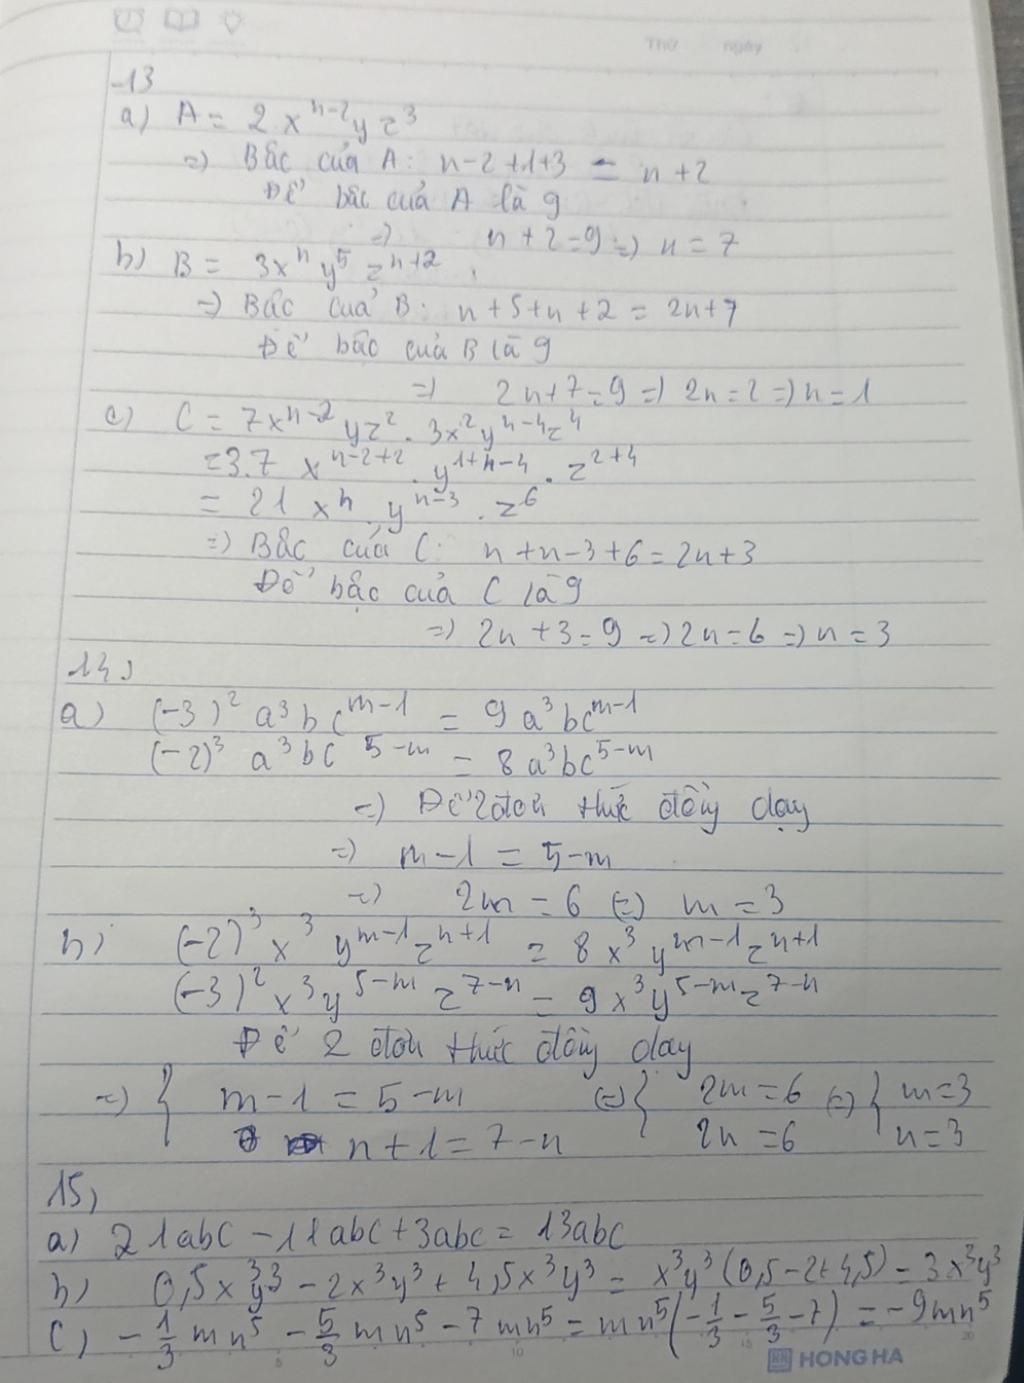 Thứ ngày
13
a) A = 2x^{n-2}yz^3
=) Bậc của A: n-2+1+3 = n+2
Để bậc của A là 9
=) n+2=9 =) n=7
b) B = 3x^n y^5 z^{n+2}
=) Bậc của B: n+5+n+2 = 2n+7
Để bậc của B là 9
=) 2n+7=9 =) 2n=2 =) n=1
c) C = 7x^{n-2}yz^2 . 3x^2y^{n-4}z^4
=3.7 x^{n-2+2} . y^{1+n-4} . z^{2+4}
= 21 x^n . y^{n-3} . z^6
=) Bậc của C: n+n-3+6=2n+3
Để bậc của C là 9
=) 2n+3=9 =) 2n=6 =) n=3
14,
a) (-3)^2 a^3 b c^{m-1} = 9a^3bc^{m-1}
(-2)^3 a^3bc^{5-m} = 8a^3bc^{5-m}
=) Để 2 đơn thức đồng dạng
=) m-1 = 5-m
=) 2m = 6 (=) m = 3
b) (-2)^3 x^3 y^{m-1}z^{n+1} = 8x^3y^{m-1}z^{n+1}
(-3)^2x^3y^{5-m}z^{7-n} = 9x^3y^{5-m}z^{7-n}
Để 2 đơn thức đồng dạng
=) { m-1 = 5-m (=) { 2m=6 (=) { m=3
n+1=7-n 2n=6 n=3
15,
a) 21abc - 11abc + 3abc = 13abc
b) 0,5x^3y^3 - 2x^3y^3 + 4,5x^3y^3 = x^3y^3(0,5-2+4,5) = 3x^3y^3
c) -\frac{1}{3}mn^5 - \frac{5}{3}mn^5 - 7mn^5 = mn^5(-\frac{1}{3}-\frac{5}{3}-7) = -9mn^5
5 10 15 20
HONG HA